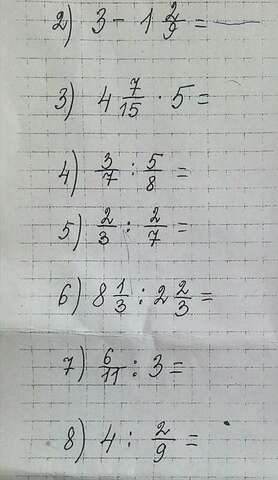 2) 3 - 1 2/9 =
3) 4 7/15 · 5 =
4) 3/7 : 5/8 =
5) 2/3 : 2/7 =
6) 8 1/3 : 2 2/3 =
7) 6/11 : 3 =
8) 4 : 2/9 =